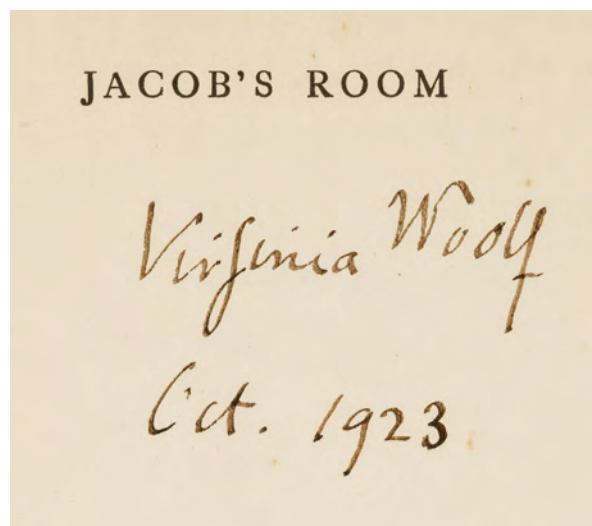 JACOB'S ROOM
Virginia Woolf
Oct. 1923